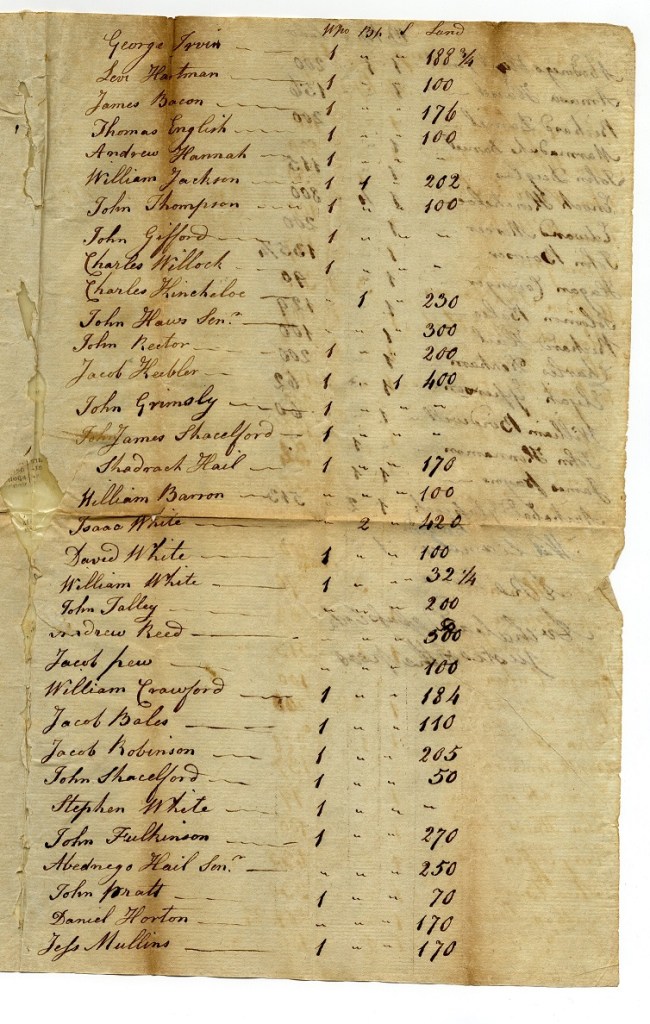 Wpo Bp S Land
George Irvin — 1 " " 188 3/4
Levi Hartman — 1 " " 100
James Bacon — 1 " " 176
Thomas English — 1 " " 100
Andrew Hannah — 1 " " "
William Jackson — 1 1 " 202
John Thompson — 1 " " 100
John Gifford — 1 " " "
Charles Willock — 1 " " "
Charles Kincheloe " 1 " 230
John Haws Senr — " " " 300
John Rector — 1 " " 200
Jacob Keebler — 1 " 1 400
John Grimsly — 1 " " "
James Shacelford — 1 " " "
Shadrach Hail — 1 " " 170
William Barron — " " " 100
Isaac White — " 2 " 420
David White — 1 " " 100
William White — 1 " " 32 1/4
John Talley — " " " 200
Andrew Reed — " " " 500
Jacob pew — " " " 100
William Crawford — 1 " " 184
Jacob Bales — 1 " " 110
Jacob Robinson — 1 " " 205
John Shacelford — 1 " " 50
Stephen White — 1 " " "
John Fulkinson — 1 " " 270
Abednego Hail Senr — " " " 250
John pratt — 1 " " 70
Daniel Horton — " " " 170
Jess Mullins — 1 " " 170